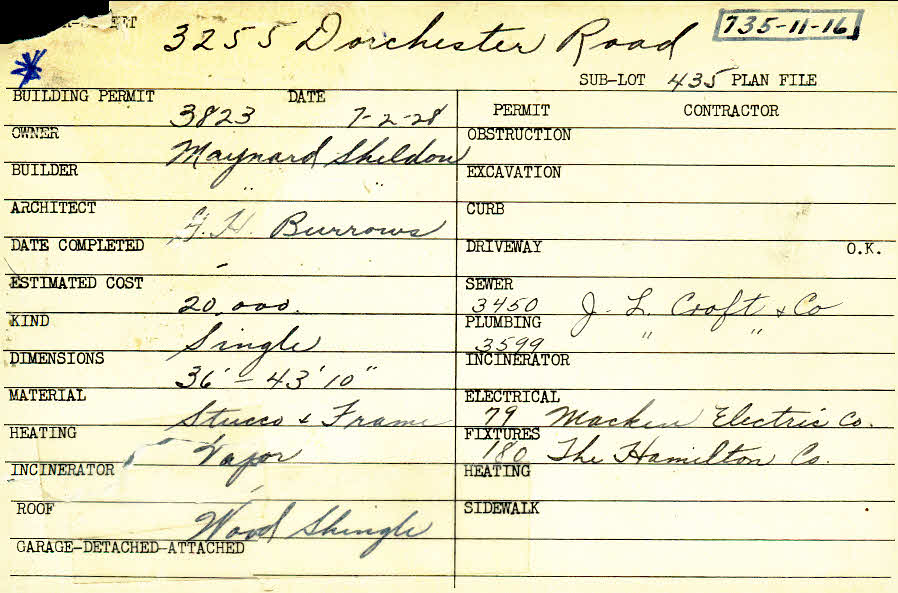 3255 Dorchester Road 735-11-16
SUB-LOT 435 PLAN FILE
BUILDING PERMIT DATE
3823 7-2-28
OWNER
Maynard Sheldon
BUILDER
" "
ARCHITECT
G. H. Burrows
DATE COMPLETED
ESTIMATED COST
20,000.
KIND
Single
DIMENSIONS
36' – 43' 10"
MATERIAL
Stucco & Frame
HEATING
Vapor
INCINERATOR
ROOF
Wood Shingle
GARAGE-DETACHED-ATTACHED
PERMIT CONTRACTOR
OBSTRUCTION
EXCAVATION
CURB
DRIVEWAY O.K.
SEWER
3450 J. L. Croft & Co
PLUMBING
3599 " "
INCINERATOR
ELECTRICAL
79 Macken Electric Co.
FIXTURES
180 The Hamilton Co.
HEATING
SIDEWALK